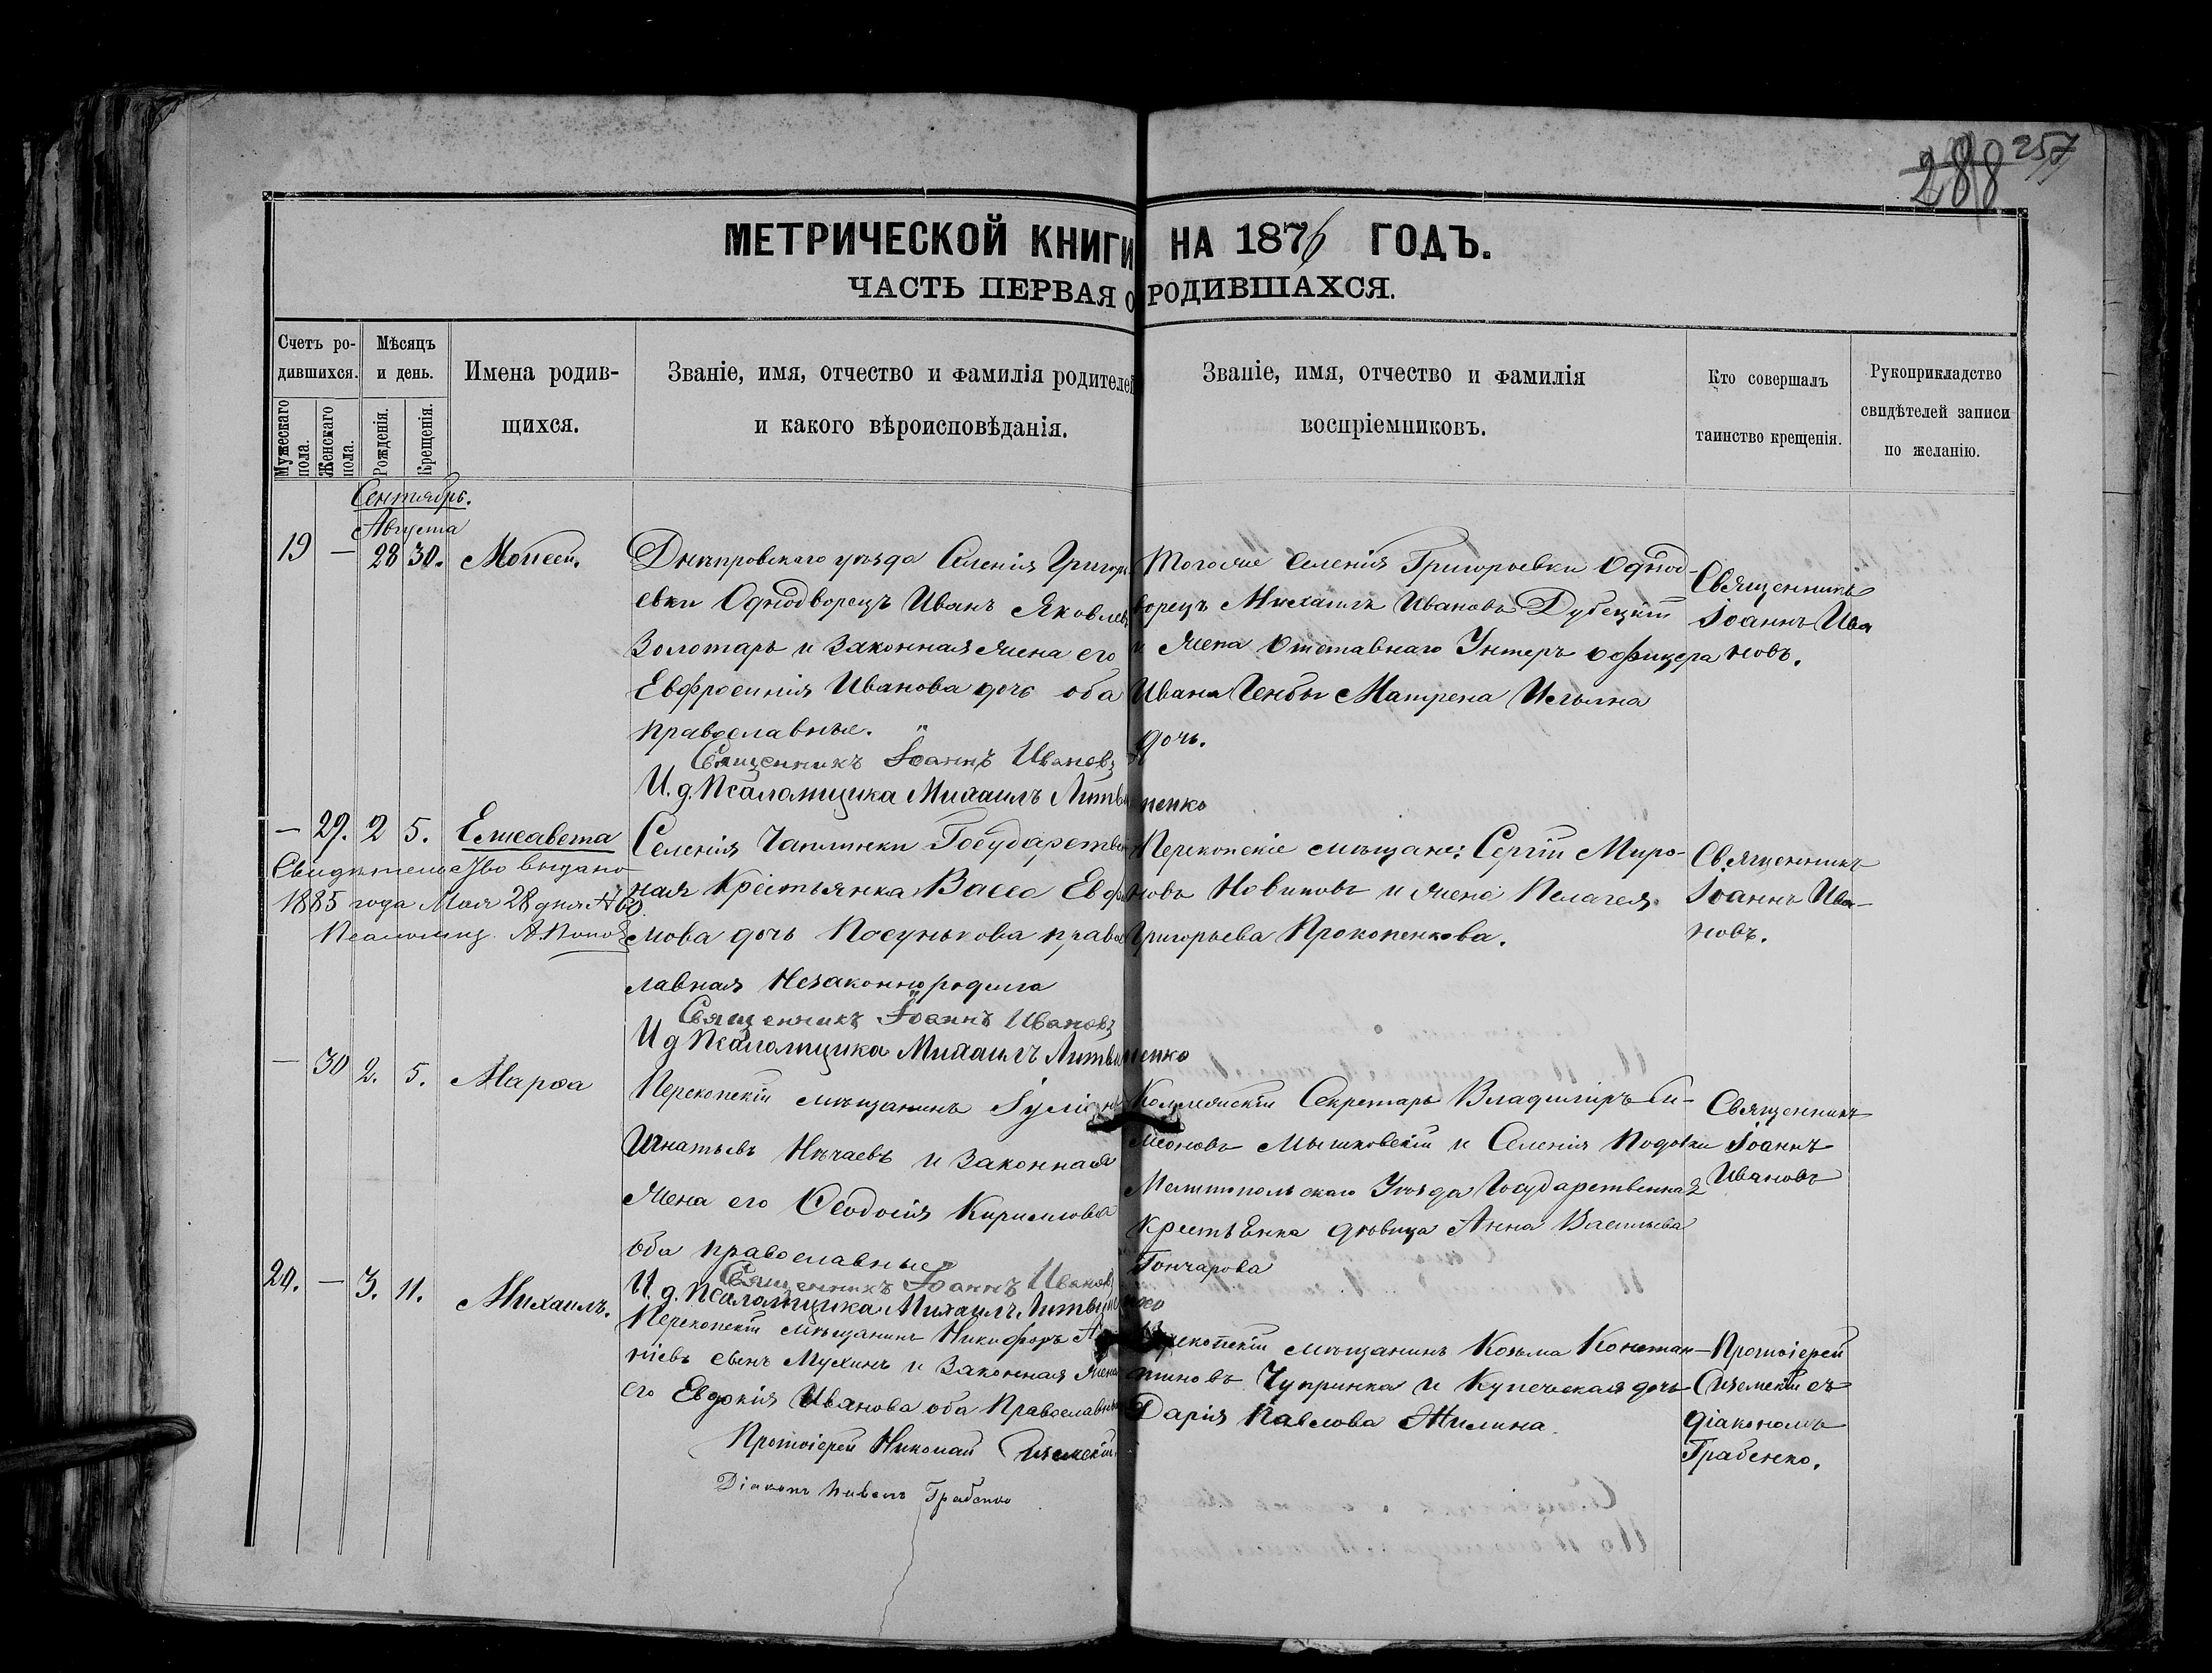 288 257
МЕТРИЧЕСКОЙ КНИГИ НА 1876 ГОДЪ.
ЧАСТЬ ПЕРВАЯ О РОДИВШАХСЯ.
Счетъ ро-
дившихся.
Мужескаго пола.
Женскаго пола.
Мѣсяцъ
и день.
Рожденія.
Крещенія.
Имена родив-
щихся.
Званіе, имя, отчество и фамилія родителей
и какого вѣроисповѣданія.
Званіе, имя, отчество и фамилія
воспріемниковъ.
Кто совершалъ
таинство крещенія.
Рукоприкладство
свидѣтелей записи
по желанію.
Сентябрь.
Августа
19 — 28 30. Моисей.
Днѣпровскаго уѣзда Селенія Григорь
евки Однодворецъ Иванъ Яковлевъ
Золотарь и законная жена его
Евфросинія Иванова дочь оба
православные.
Священникъ Іоаннъ Ивановъ
И. д. Псаломщика Михаилъ Литвиненко
Тогоже селенія Григорьевки Однод-
ворецъ Михаилъ Ивановъ Дубецкій
и жена Отставнаго Унтеръ офицера
Ивана Матрена
дочь.
Священникъ
Іоаннъ Ива
новъ.
— 29. 2 5. Елисавета
Свидѣтельство выдано
1885 года Мая 28 дня № 60.
Псаломщ. А. Попов
Селенія Чаплинки Государствен
ная Крестьянка Васса Евфи
мова дочь Посунькова правос
лавная Незаконнородила
Священникъ Іоаннъ Ивановъ
И д Псаломщика Михаилъ Литвиненко
Перекопскіе мѣщане: Сергій Миро-
новъ Новиковъ и жена Пелагея
Григорьева Прокопенкова.
Священникъ
Іоаннъ Ива-
новъ.
— 30 2. 5. Марѳа
Перекопскій мѣщанинъ Іуліанъ
Игнатьевъ Нѣчаевъ и законная
жена его Ѳеодосія Кириллова
оба православные
Священникъ Іоаннъ Ивановъ
И. д. Псаломщика Михаилъ Литвиненко
Коллежскій Секретарь Владиміръ Си-
меоновъ Мышковскій и Селенія
Мелитопольскаго Уѣзда Государственная
крестьянка дѣвица Анна Васильева
Гончарова
Священникъ
Іоаннъ
Ивановъ
20. — 3. 11. Михаилъ.
Перекопскій мѣщанинъ Никифоръ
сынъ Мухинъ и Законная жена
его Евдокія Иванова оба Православные
Протоіерей Николай
Діаконъ Павелъ Грабенко
Перекопскій мѣщанинъ Козьма Констан-
тиновъ Чупринка и Купеческая дочь
Дарія Павлова Жилина.
Протоіерей
съ
діакономъ
Грабенко.